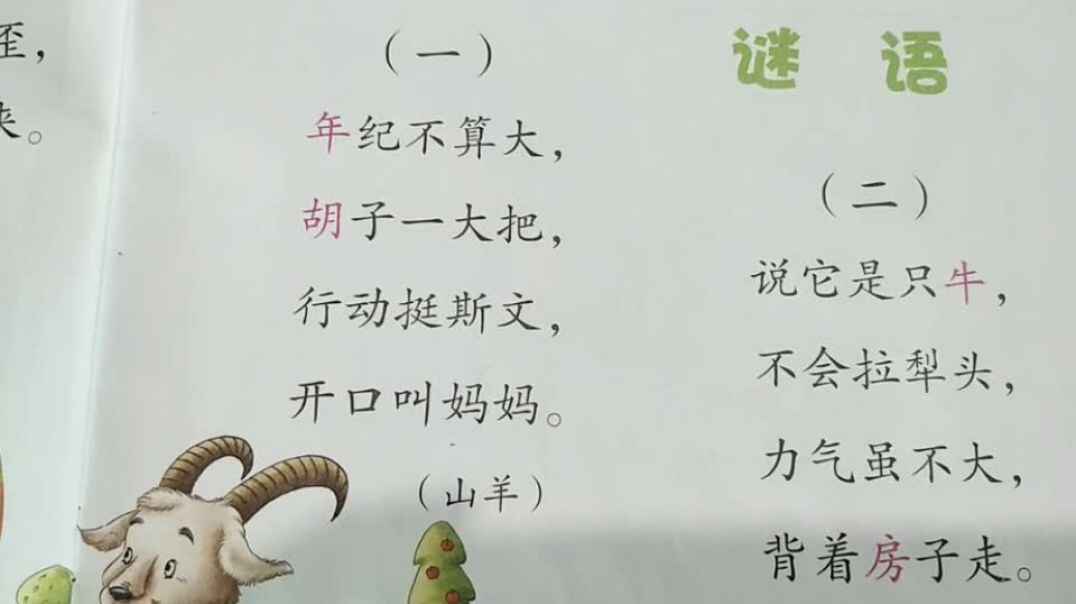 歪，
谜语
（一）
年纪不算大，
胡子一大把，
行动挺斯文，
开口叫妈妈。
（山羊）
（二）
说它是只牛，
不会拉犁头，
力气虽不大，
背着房子走。